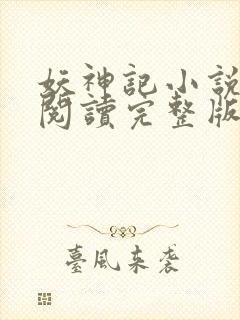 妖神記小說
閱讀完整版
臺風來袭